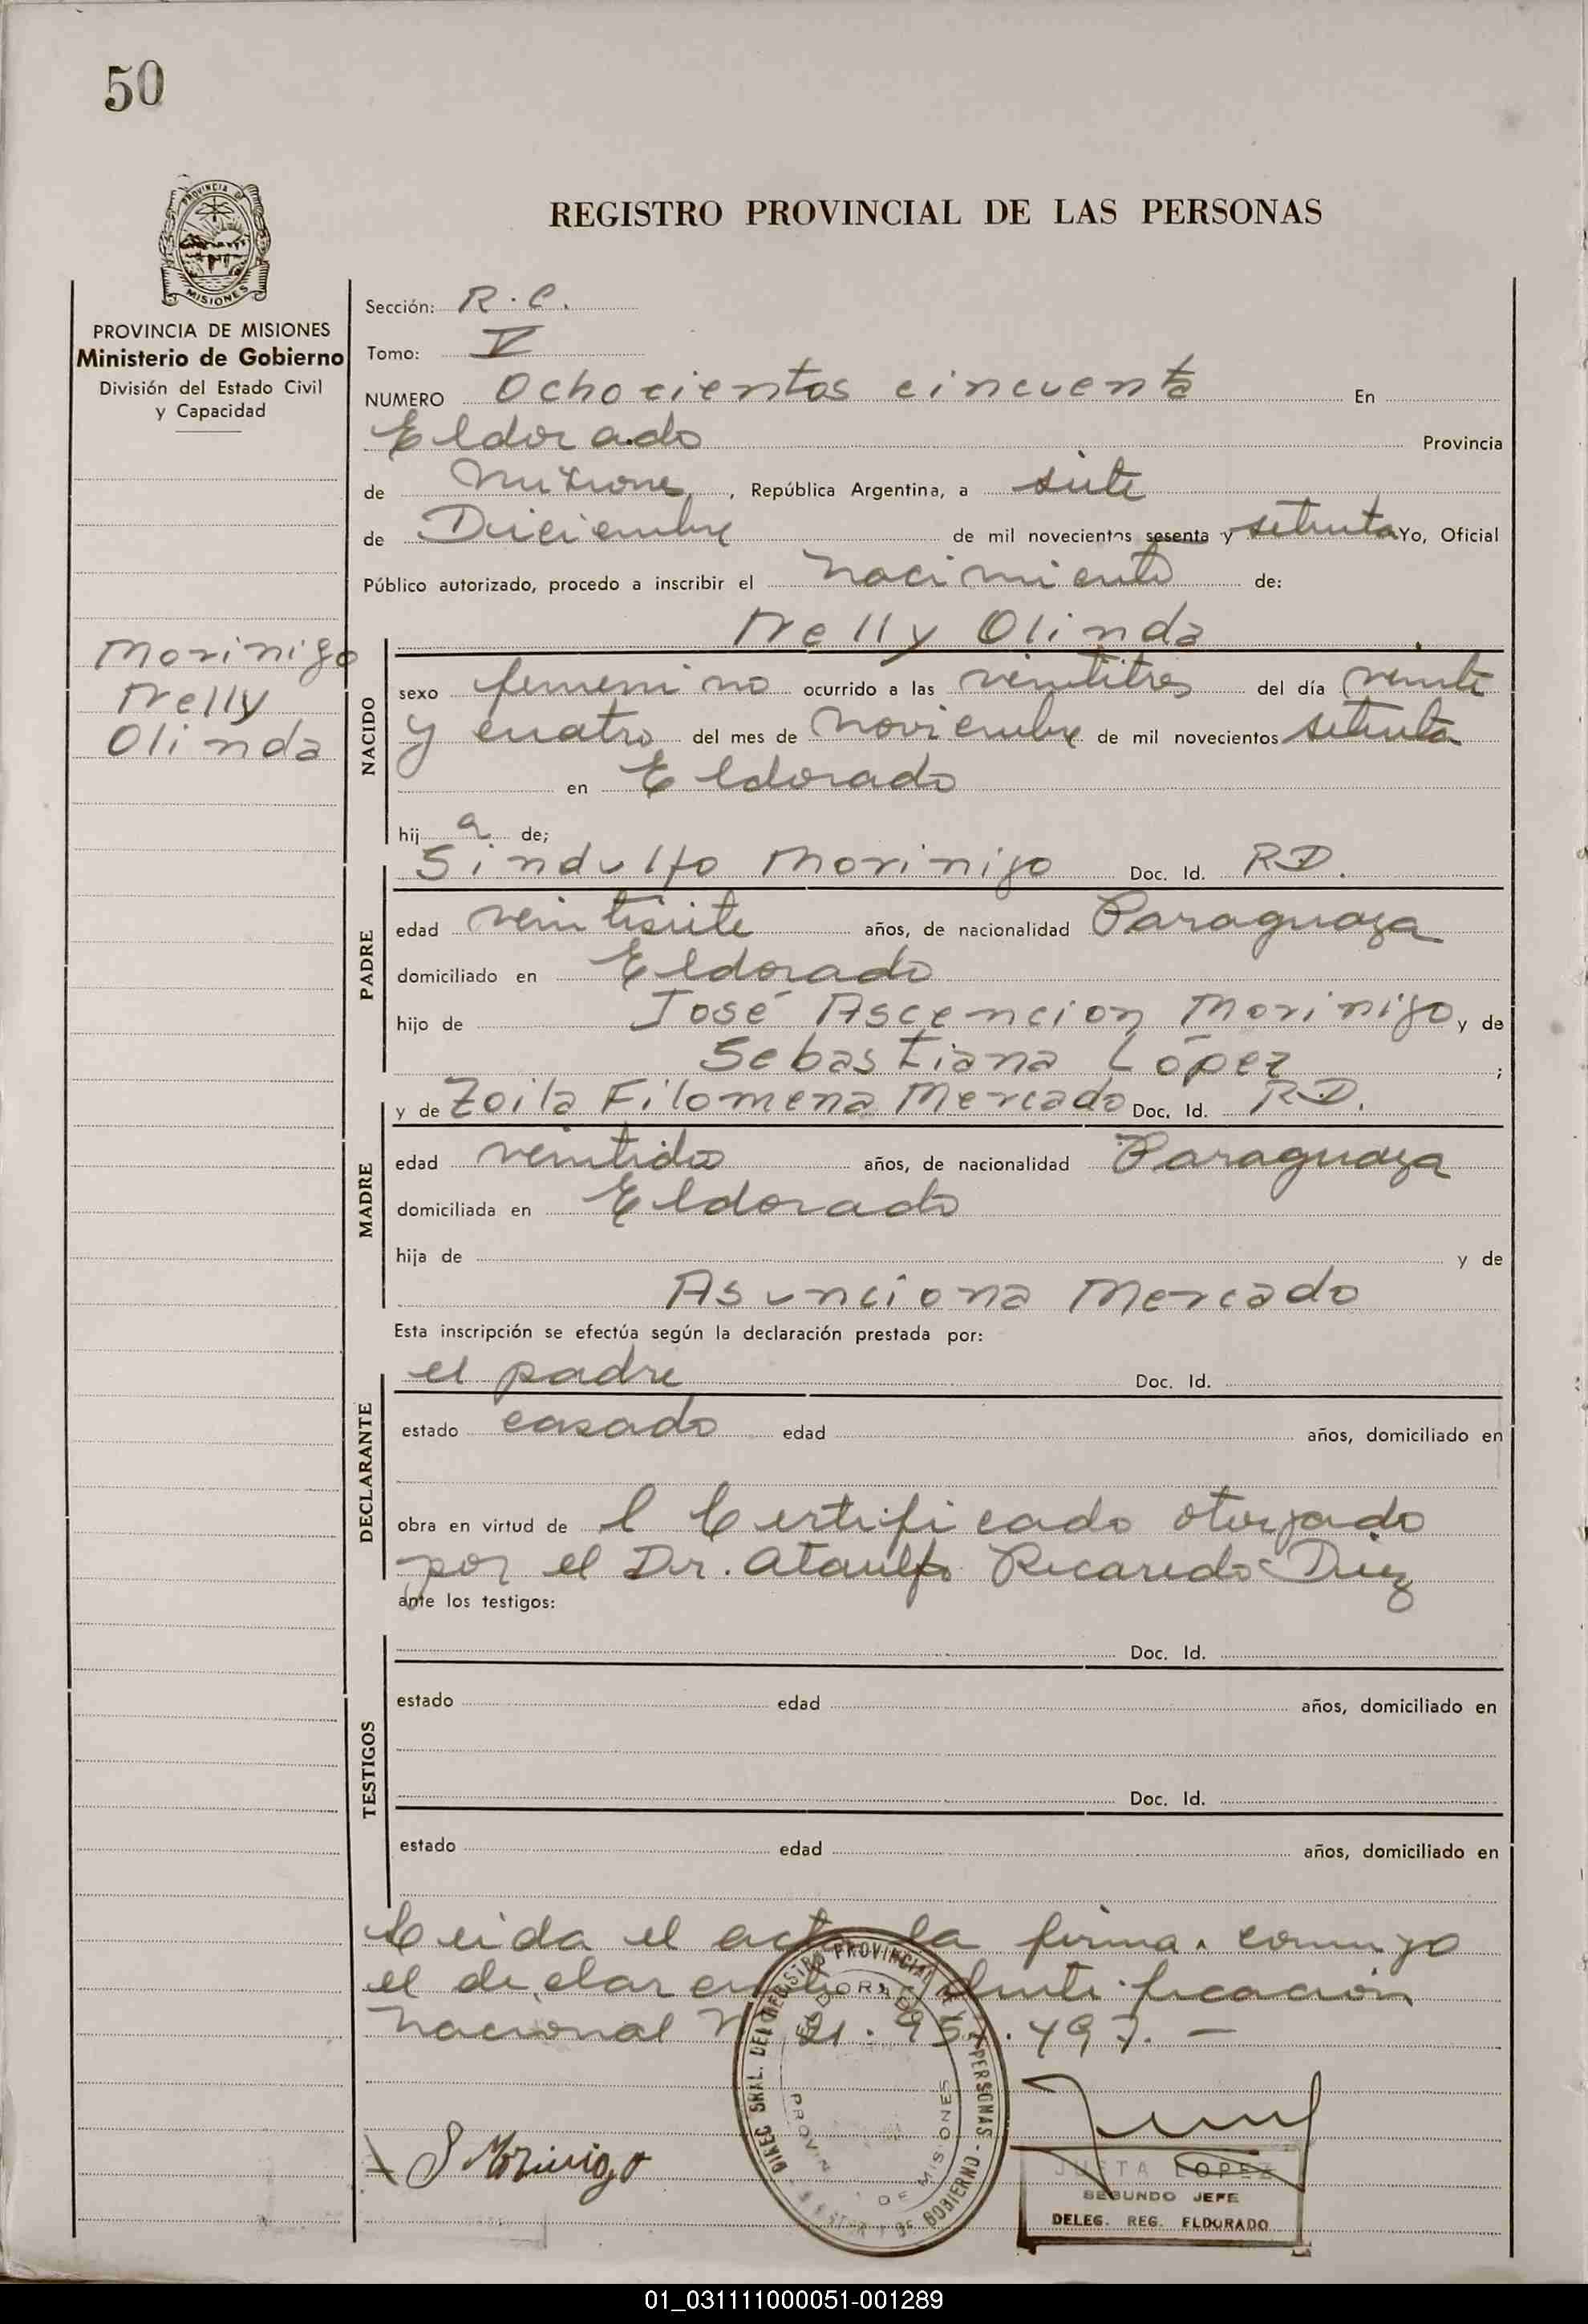 50
PROVINCIA DE
MISIONES
PROVINCIA DE MISIONES
Ministerio de Gobierno
División del Estado Civil
y Capacidad
REGISTRO PROVINCIAL DE LAS PERSONAS
Sección: R.C.
Tomo: V
NUMERO Ochocientos cincuenta En
Eldorado Provincia
de Misiones, República Argentina, a siete
de Diciembre de mil novecientos sesenta y setenta Yo, Oficial
Público autorizado, procedo a inscribir el nacimiento de:
Nelly Olinda
Morinigo
Nelly
Olinda
NACIDO
sexo femenino ocurrido a las veintitres del día veinte
y cuatro del mes de noviembre de mil novecientos setenta
en Eldorado
hij a de;
PADRE
Sindulfo Morinigo Doc. Id. RD.
edad veintisiete años, de nacionalidad Paraguaya
domiciliado en Eldorado
hijo de José Ascencion Morinigo y de
Sebastiana López ;
MADRE
y de Zoila Filomena Mercado Doc. Id. RD.
edad veintidos años, de nacionalidad Paraguaya
domiciliada en Eldorado
hija de y de
Asunciona Mercado
Esta inscripción se efectúa según la declaración prestada por:
DECLARANTE
el padre Doc. Id.
estado casado edad años, domiciliado en
obra en virtud de l Certificado otorgado
por el Dr. Ataulfo Ricaredo Diez
ante los testigos:
TESTIGOS
Doc. Id.
estado edad años, domiciliado en
Doc. Id.
estado edad años, domiciliado en
Leida el acta la firma conmigo
el declarante Identificación
Nacional
S Morinigo
DIREC. GRAL. DEL REGISTRO PROVINCIAL DE PERSONAS - DE GOBIERNO
ELDORADO
DE MISIONES
JUSTA LOPEZ
SEGUNDO JEFE
DELEG. REG. ELDORADO
01_031111000051-001289